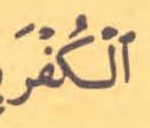 ٱلۡكُفۡرَ